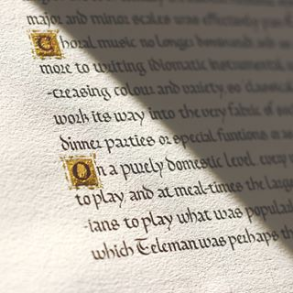 major and minor scales was effectively
Choral music no longer
more to writing idiomatic instrumental
-creasing colour and variety, so classical
work its way into the very fabric of
dinner parties or special funtions
On a purely domestic level, every
to play and at meal-times the large
-ians to play what was popular
which Teleman was perhaps th